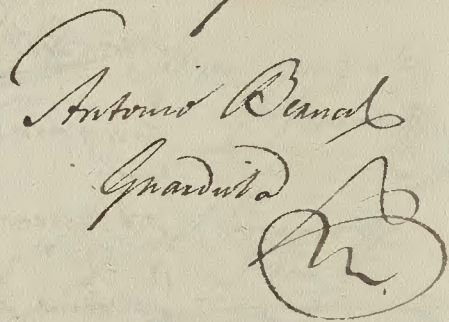 Antonio Bernal
Guardiola